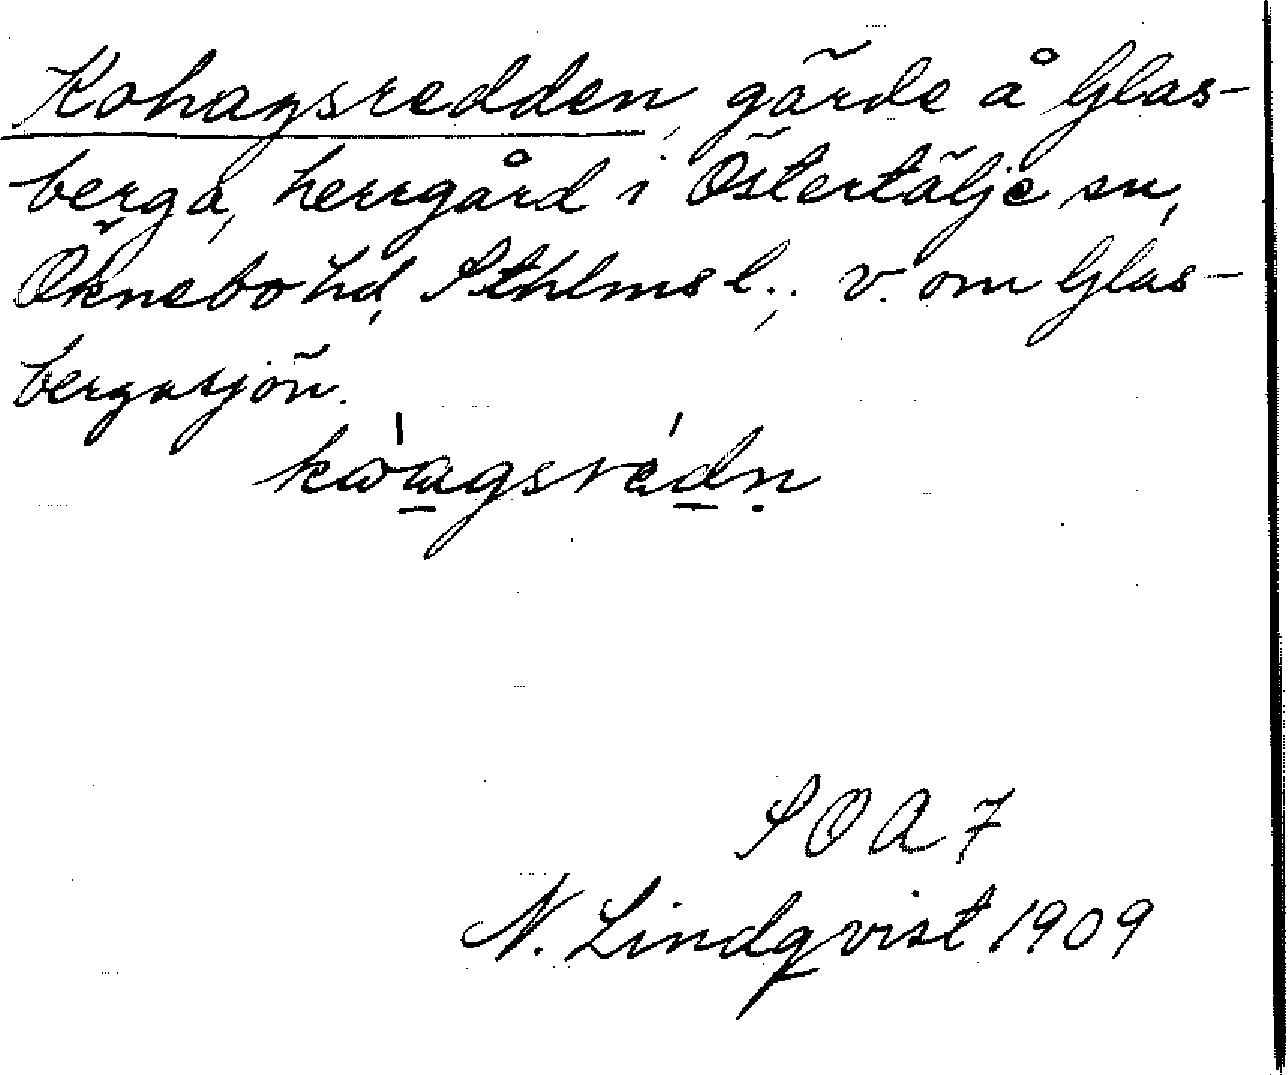 Kohagsredden, gärde å Glas-
berga, herrgård i Östertälje sn,
Öknebo hd, Sthlms l.; v. om Glas-
bergasjön.
SOA 7
N. Lindqvist 1909